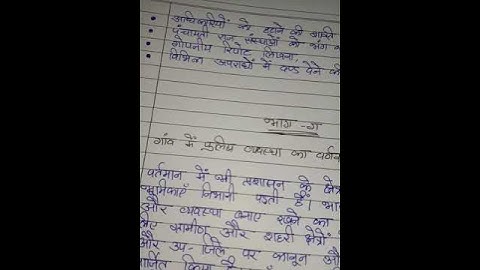 अधिकारियों के हटाने की शक्ति
पंचायती राज संस्थाओं को भंग
गोपनीय रिपोर्ट लिखना
विभिन्न अपराधों में दण्ड देने की
भाग -ग
गांव में पुलिस व्यवस्था का वर्णन
वर्तमान में भी प्रशासन के क्षेत्र
भूमिकाएँ निभानी पड़ती हैं।
और व्यवस्था बनाए रखने का
लिए ग्रामीण और शहरी क्षेत्रों
और उप- जिले पर कानून और